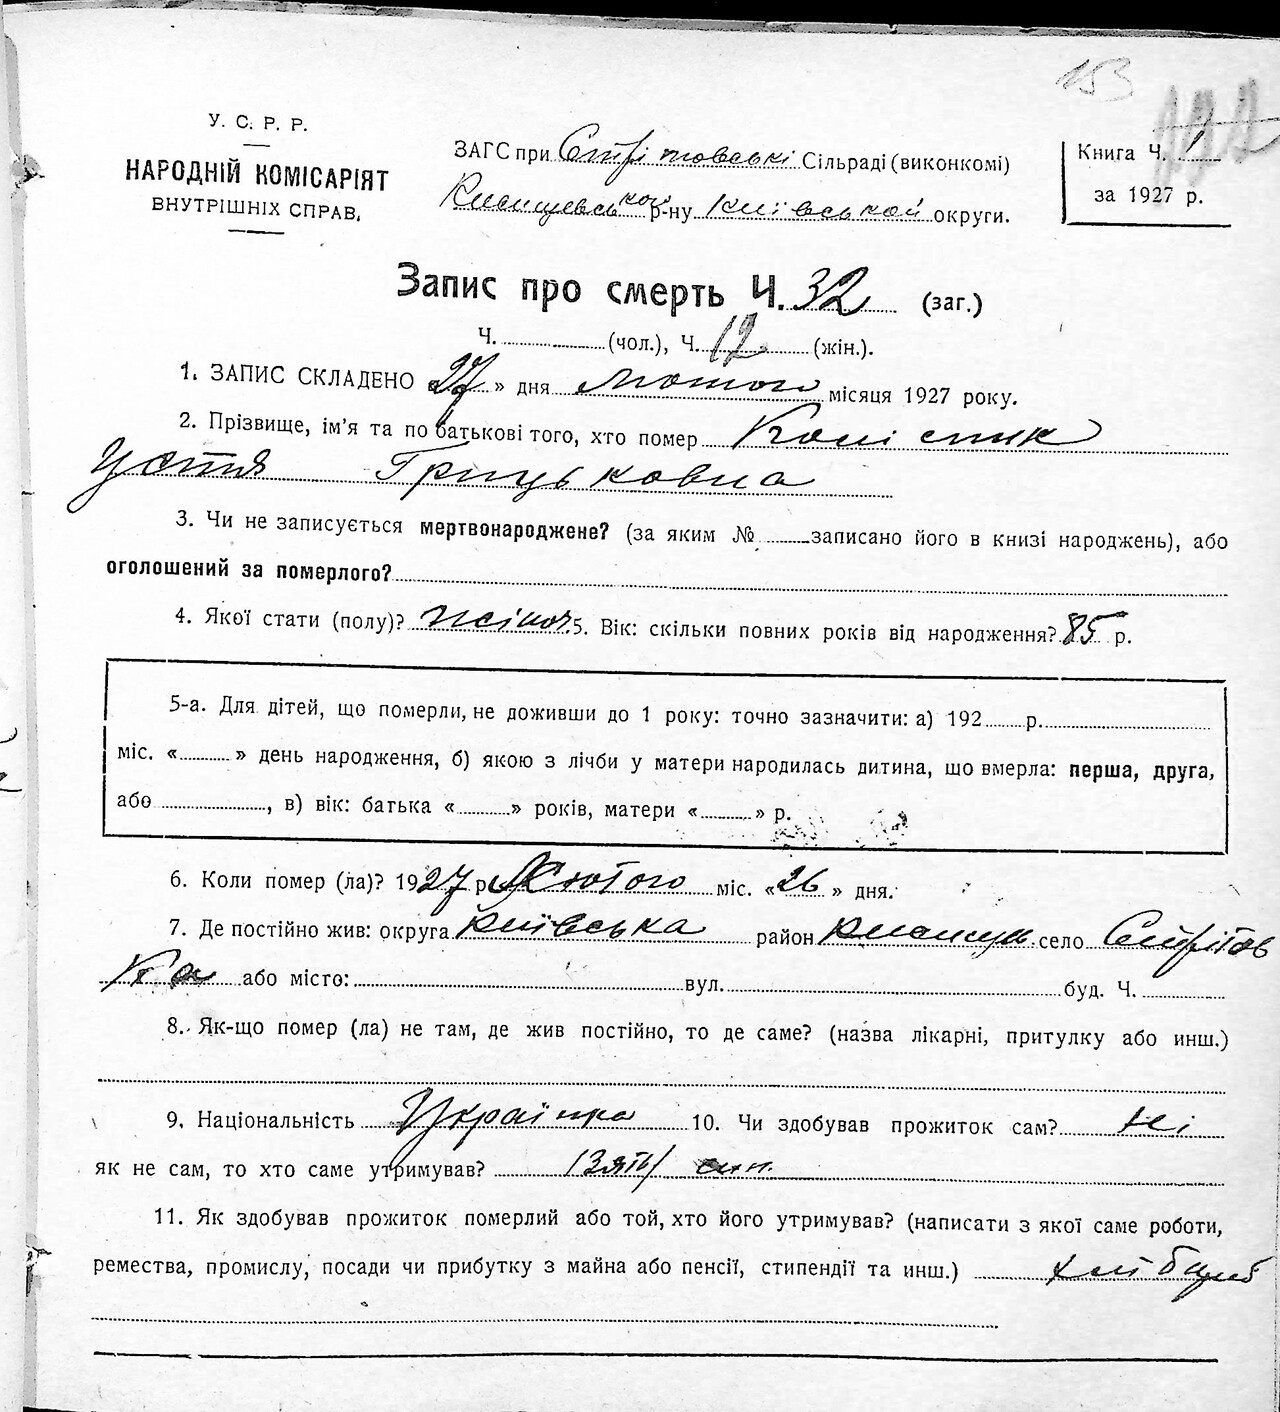 153
У. С. Р. Р.
НАРОДНІЙ КОМІСАРІЯТ
ВНУТРІШНІХ СПРАВ.
ЗАГС при Стрітовські Сільраді (виконкомі)
р-ну Київськой округи.
Книга Ч. 1
за 1927 р.
Запис про смерть Ч. 32 (заг.)
Ч. (чол.), Ч. 12 (жін.).
1. ЗАПИС СКЛАДЕНО 27 » дня Лютого місяця 1927 року.
2. Прізвище, ім'я та по батькові того, хто помер Колісник
Устя Грицьковна
3. Чи не записується мертвонароджене? (за яким № записано його в книзі народжень), або
оголошений за померлого?
4. Якої стати (полу)? жіноч. 5. Вік: скільки повних років від народження? 85 р.
5-а. Для дітей, що померли, не доживши до 1 року: точно зазначити: а) 192 р.
міс. « » день народження, б) якою з лічби у матери народилась дитина, що вмерла: перша, друга,
або , в) вік: батька « » років, матери « » р.
6. Коли помер (ла)? 1927 р. Лютого міс. « 26 » дня.
7. Де постійно жив: округа Київська район село Стрітов
ка або місто: вул. буд. Ч.
8. Як-що помер (ла) не там, де жив постійно, то де саме? (назва лікарні, притулку або инш.)
9. Національність Українка 10. Чи здобував прожиток сам? Ні
як не сам, то хто саме утримував? /Зять/ син.
11. Як здобував прожиток померлий або той, хто його утримував? (написати з якої саме роботи,
ремества, промислу, посади чи прибутку з майна або пенсії, стипендії та инш.)